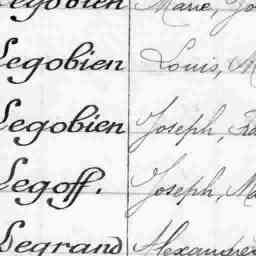 Legobien Marie, Jo
Legobien Louis, M
Legobien Joseph,
Legoff. Joseph, Ma
Legrand Alexandre